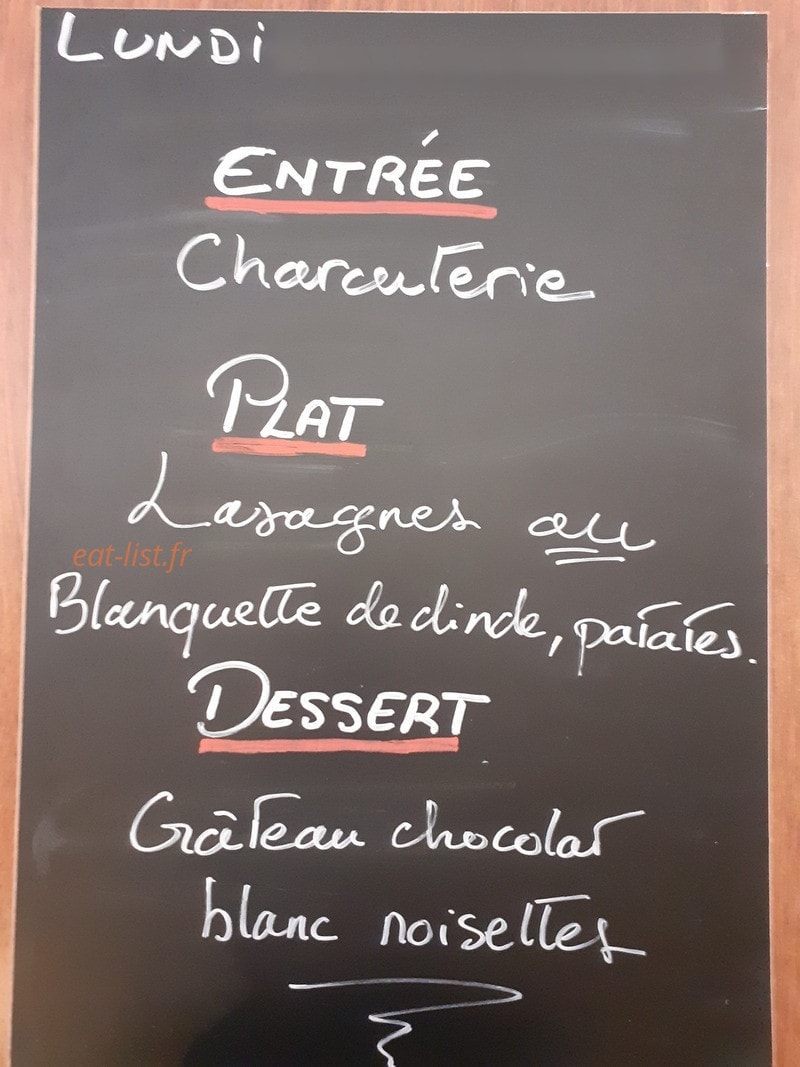 LUNDi
ENTRÉE
Charcuterie
PLAT
Lasagnes au
eat-list.fr
Blanquette de dinde, patates.
DESSERT
Gâteau chocolat
blanc noisettes